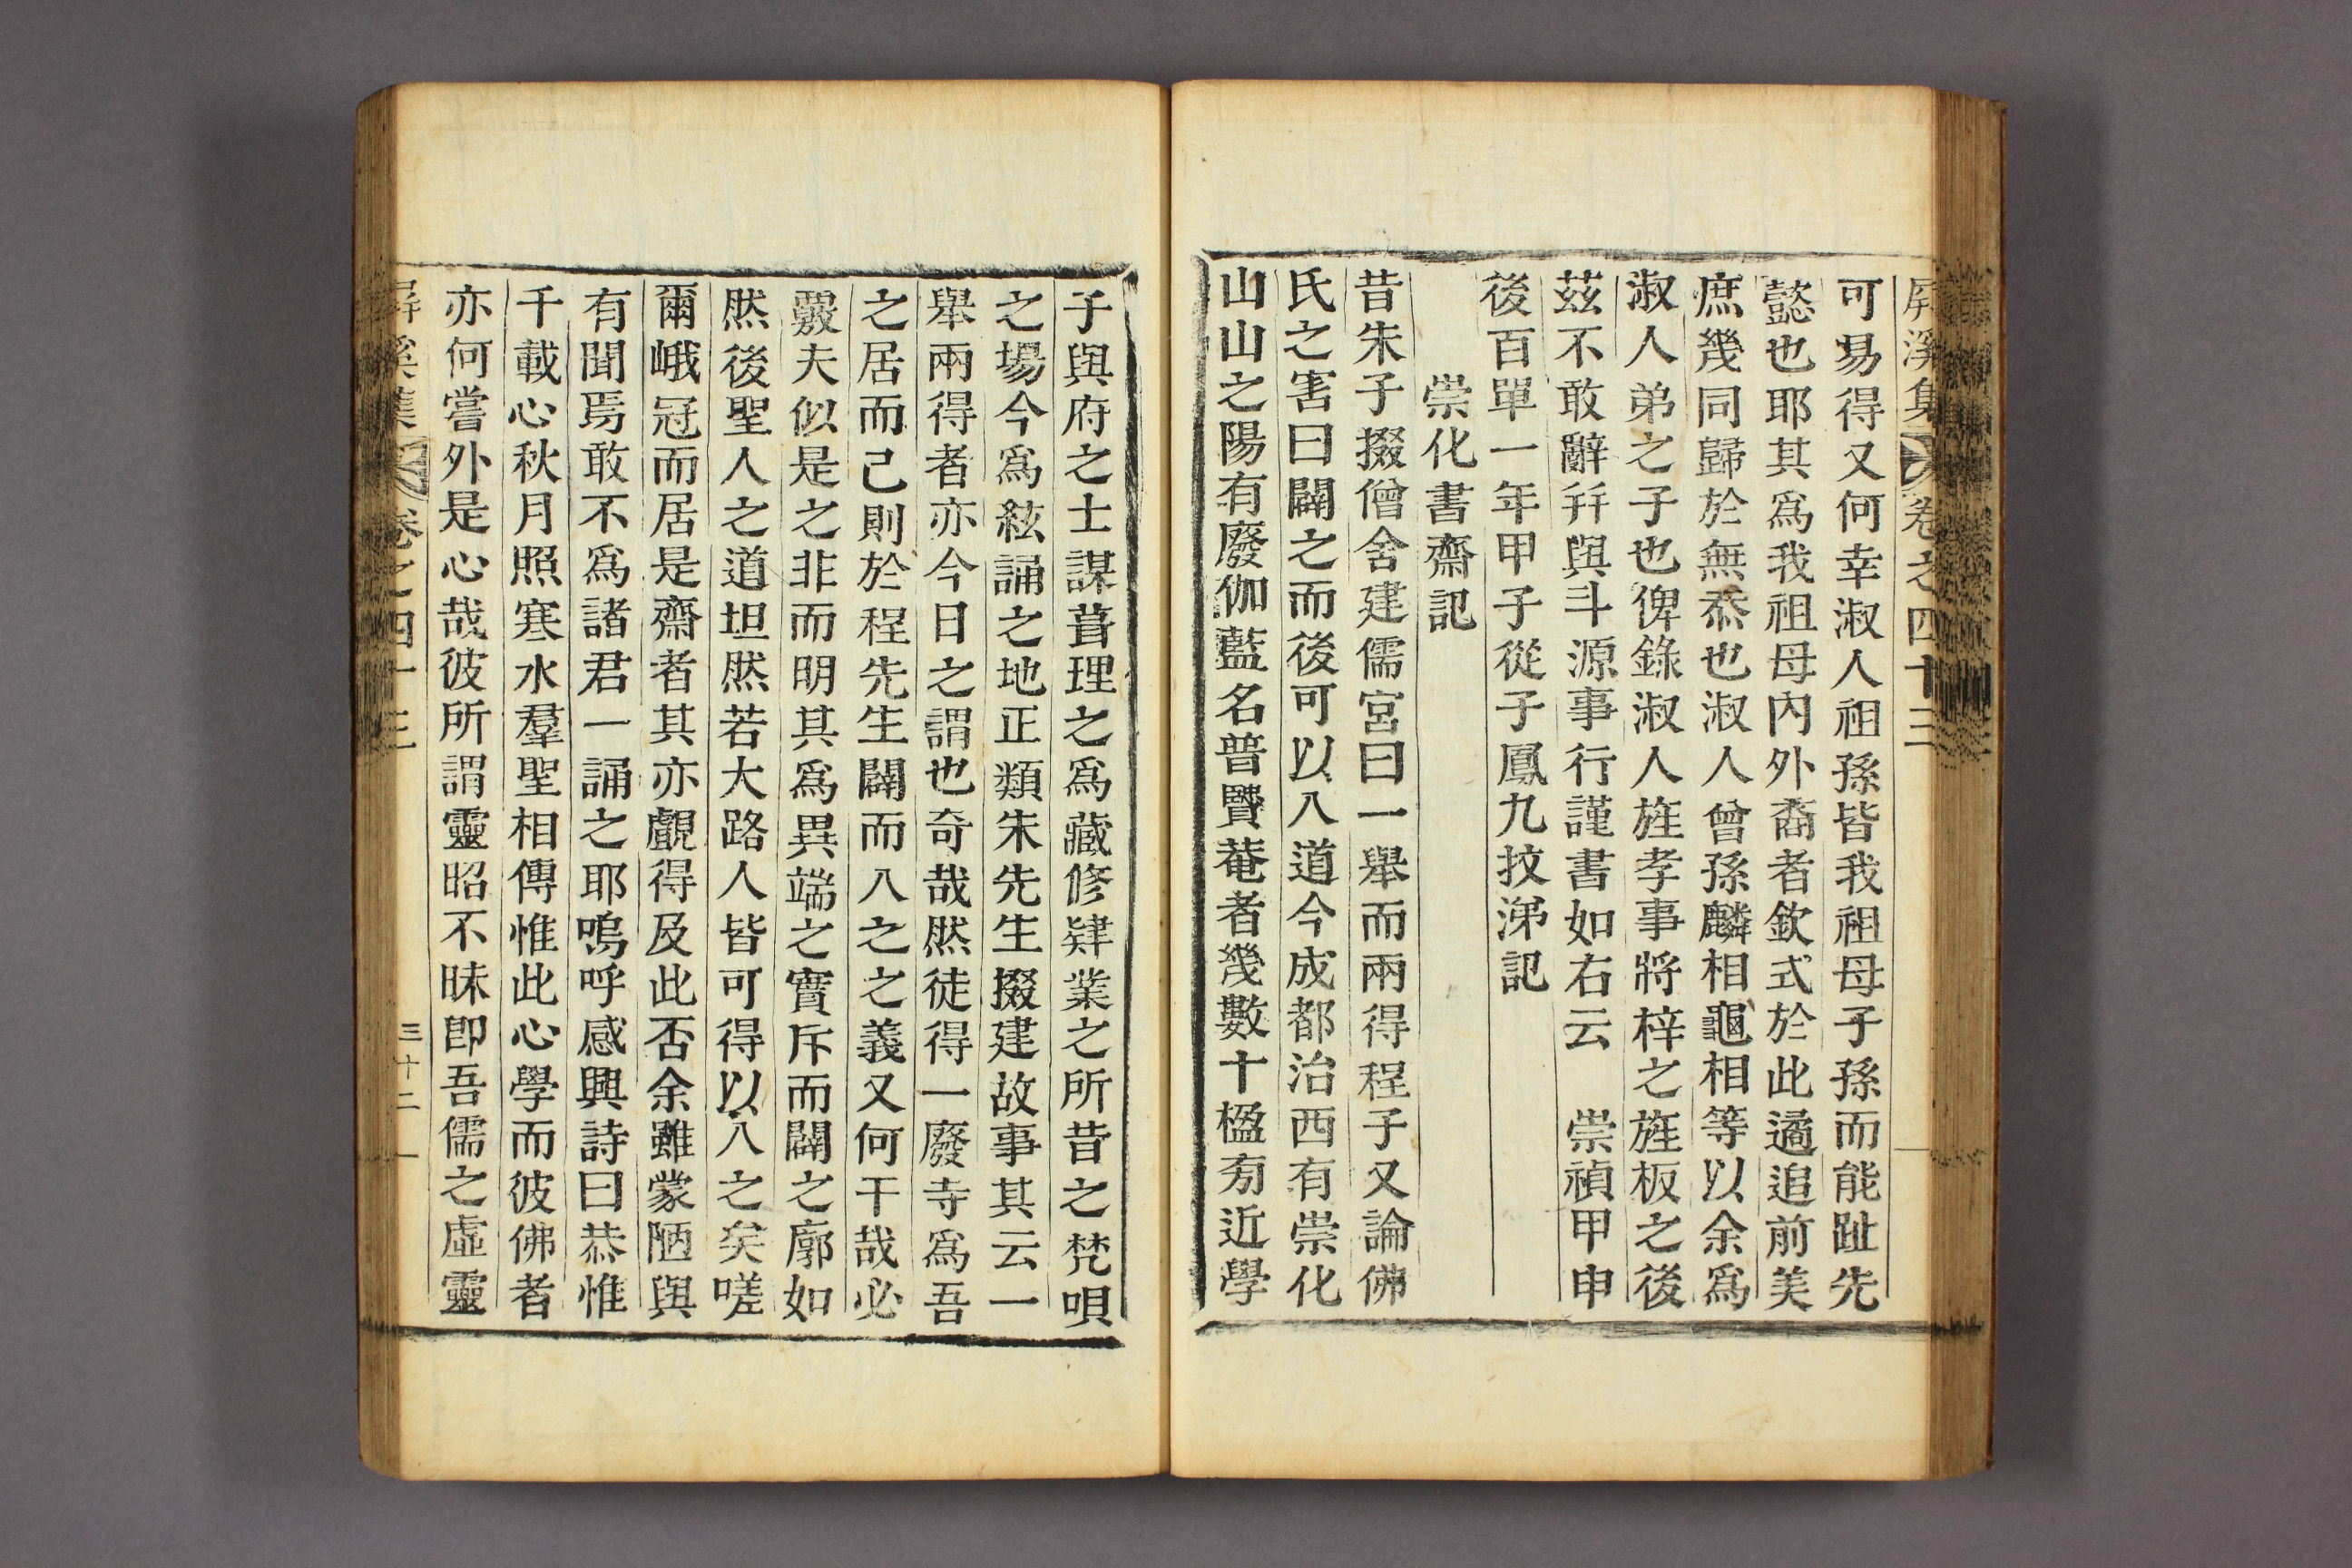 屏溪集 卷之四十三
可易得又何幸淑人祖孫皆我祖母子孫而能趾先
懿也耶其爲我祖母內外裔者欽式於此遹追前美
庶幾同歸於無忝也淑人曾孫麟相龜相等以余爲
淑人弟之子也俾錄淑人旌孝事將梓之旌板之後
茲不敢辭幷與斗源事行謹書如右云 崇禎甲申
後百單一年甲子從子鳳九抆涕記
崇化書齋記
昔朱子掇僧舍建儒宮曰一舉而兩得程子又論佛
氏之害曰闢之而後可以入道今成都治西有崇化
山山之陽有廢伽藍名普賢菴者幾數十楹夯近學
子與府之士謀葺理之爲藏修肄業之所昔之梵唄
之場今爲絃誦之地正類朱先生掇建故事其云一
舉兩得者亦今日之謂也奇哉然徒得一廢寺爲吾
之居而已則於程先生闢而入之之義又何干哉必
覈夫似是之非而明其爲異端之實斥而闢之廓如
然後聖人之道坦然若大路人皆可得以入之矣嗟
爾峨冠而居是齋者其亦覰得及此否余雖蒙陋與
有聞焉敢不爲諸君一誦之耶嗚呼感興詩曰恭惟
千載心秋月照寒水羣聖相傳惟此心學而彼佛者
亦何嘗外是心哉彼所謂靈昭不昧卽吾儒之虛靈
屏溪集 卷之四十三 三十二